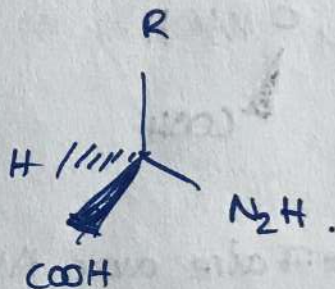 R
H
N₂H.
COOH